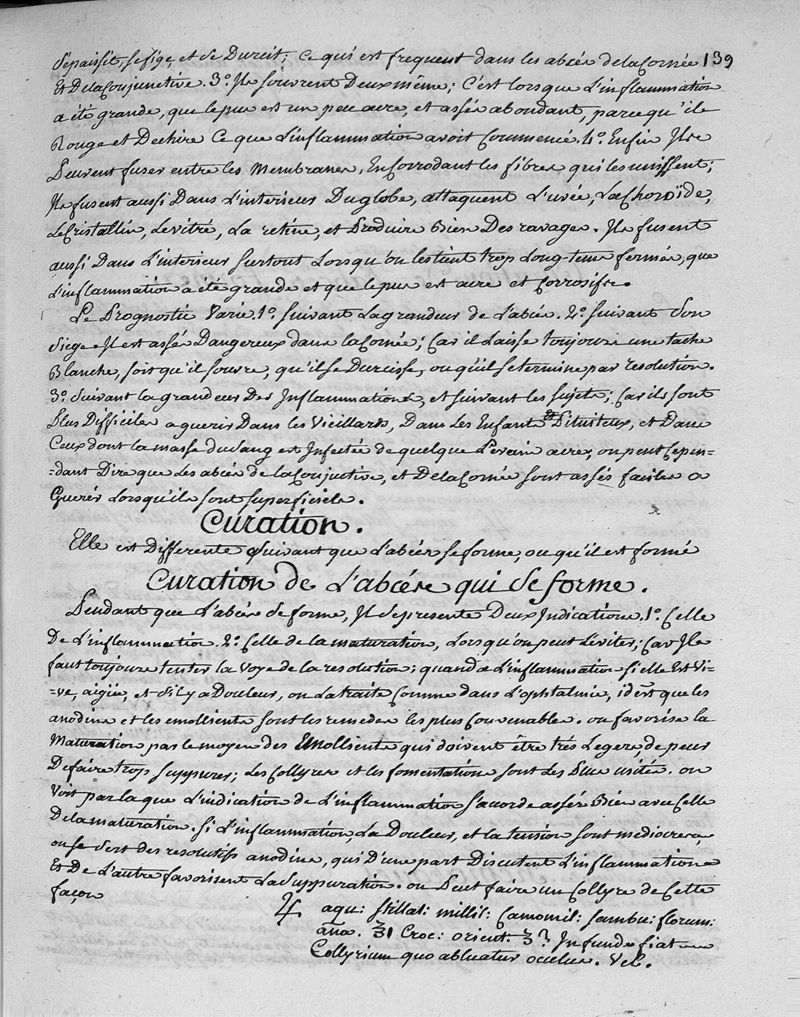 S'épaissit, se fige, et se Durcit; Ce qui est frequent dans les abcés de la Cornée 139
Et De la Conjunctive. 3.º Ils souvrent Deux même; C'est lorsque L'inflammation
a été grande, que le pus est un peu acre, et assés abondant, parcequ'ils
Rouge et Dechire Ce que L'inflammation avoit Commencé. 4.º Enfin Ils se
Peuvent fuser entre les Membranes, En Corrodant les fibres qui les unissent;
Ils fusent aussi Dans L'interieur Du globe, attaquent L'uvée, La Choroïde,
Le Cristallin, Le vitré, La retine, et Produire Bien Des ravages. Ils fusent
aussi Dans L'interieur Surtout Lorsqu'on les tient trop Long-tems fermés, que
L'inflammation a été grande et que le pus est acre et Corrosif.
Le Prognostic Varie. 1.º Suivant La grandeur de L'abcés. 2.º Suivant Son
Siege Il est assés Dangereux dans la Cornée; Car il Laisse toujours une tache
Blanche, soit qu'il s'ouvre, qu'il se Durcisse, ou qu'il se termine par resolution.
3.º Suivant la grandeur Des Inflammations, et suivant les sujets; Car ils sont
Plus Difficiles a guerir Dans les Vieillards, Dans Les Enfants Pituiteux, et Dans
Ceux dont la masse du sang est Infectée de quelque Levain acre; on peut Cepen-
-dant Dire que Les abcés de la Conjuctive, et De la Cornée sont assés faciles a
Guerir Lorsqu'ils sont superficiels.
Curation.
Elle est Differente Suivant que L'abcés se forme, ou qu'il est formé
Curation de L'abcés qui Se forme.
Pendant que L'abcés se forme, Il se presente Deux Indications. 1.º Celle
De L'inflammation. 2.º Celle de la maturation, Lorsqu'on peut L'eviter; Car Il
faut toujours tenter la Voye de la resolution; quand a L'inflammation si elle Est Vi-
-ve, aigüe, et s'il y a Douleur, on La traite Comme dans L'ophtalmie, idest que les
anodins et les emollients sont les remedes les plus Convenables. on favorise la
Maturation par le moyen des Emollients qui doivent être très Legers de peur
De faire trop suppurer; Les Collyres et les fomentations sont Les Plus usités. on
Voit par la que L'indication de L'inflammation s'acorde assés Bien avec Celle
De la maturation. Si L'inflammation, La Douleur, et la tension sont mediocres,
on se sert des resolutifs anodins, qui D'une part Discutent L'inflammation
Et De L'autre favorisent La Suppuration. on Peut faire un Collyre de Cette
façon
♃ aqu: stillat: millil: Camomil: sambu: florum:
ana. ℥1 Croc: orient. Infundes fiat
Collyrium quo abluatur oculus. Vel.